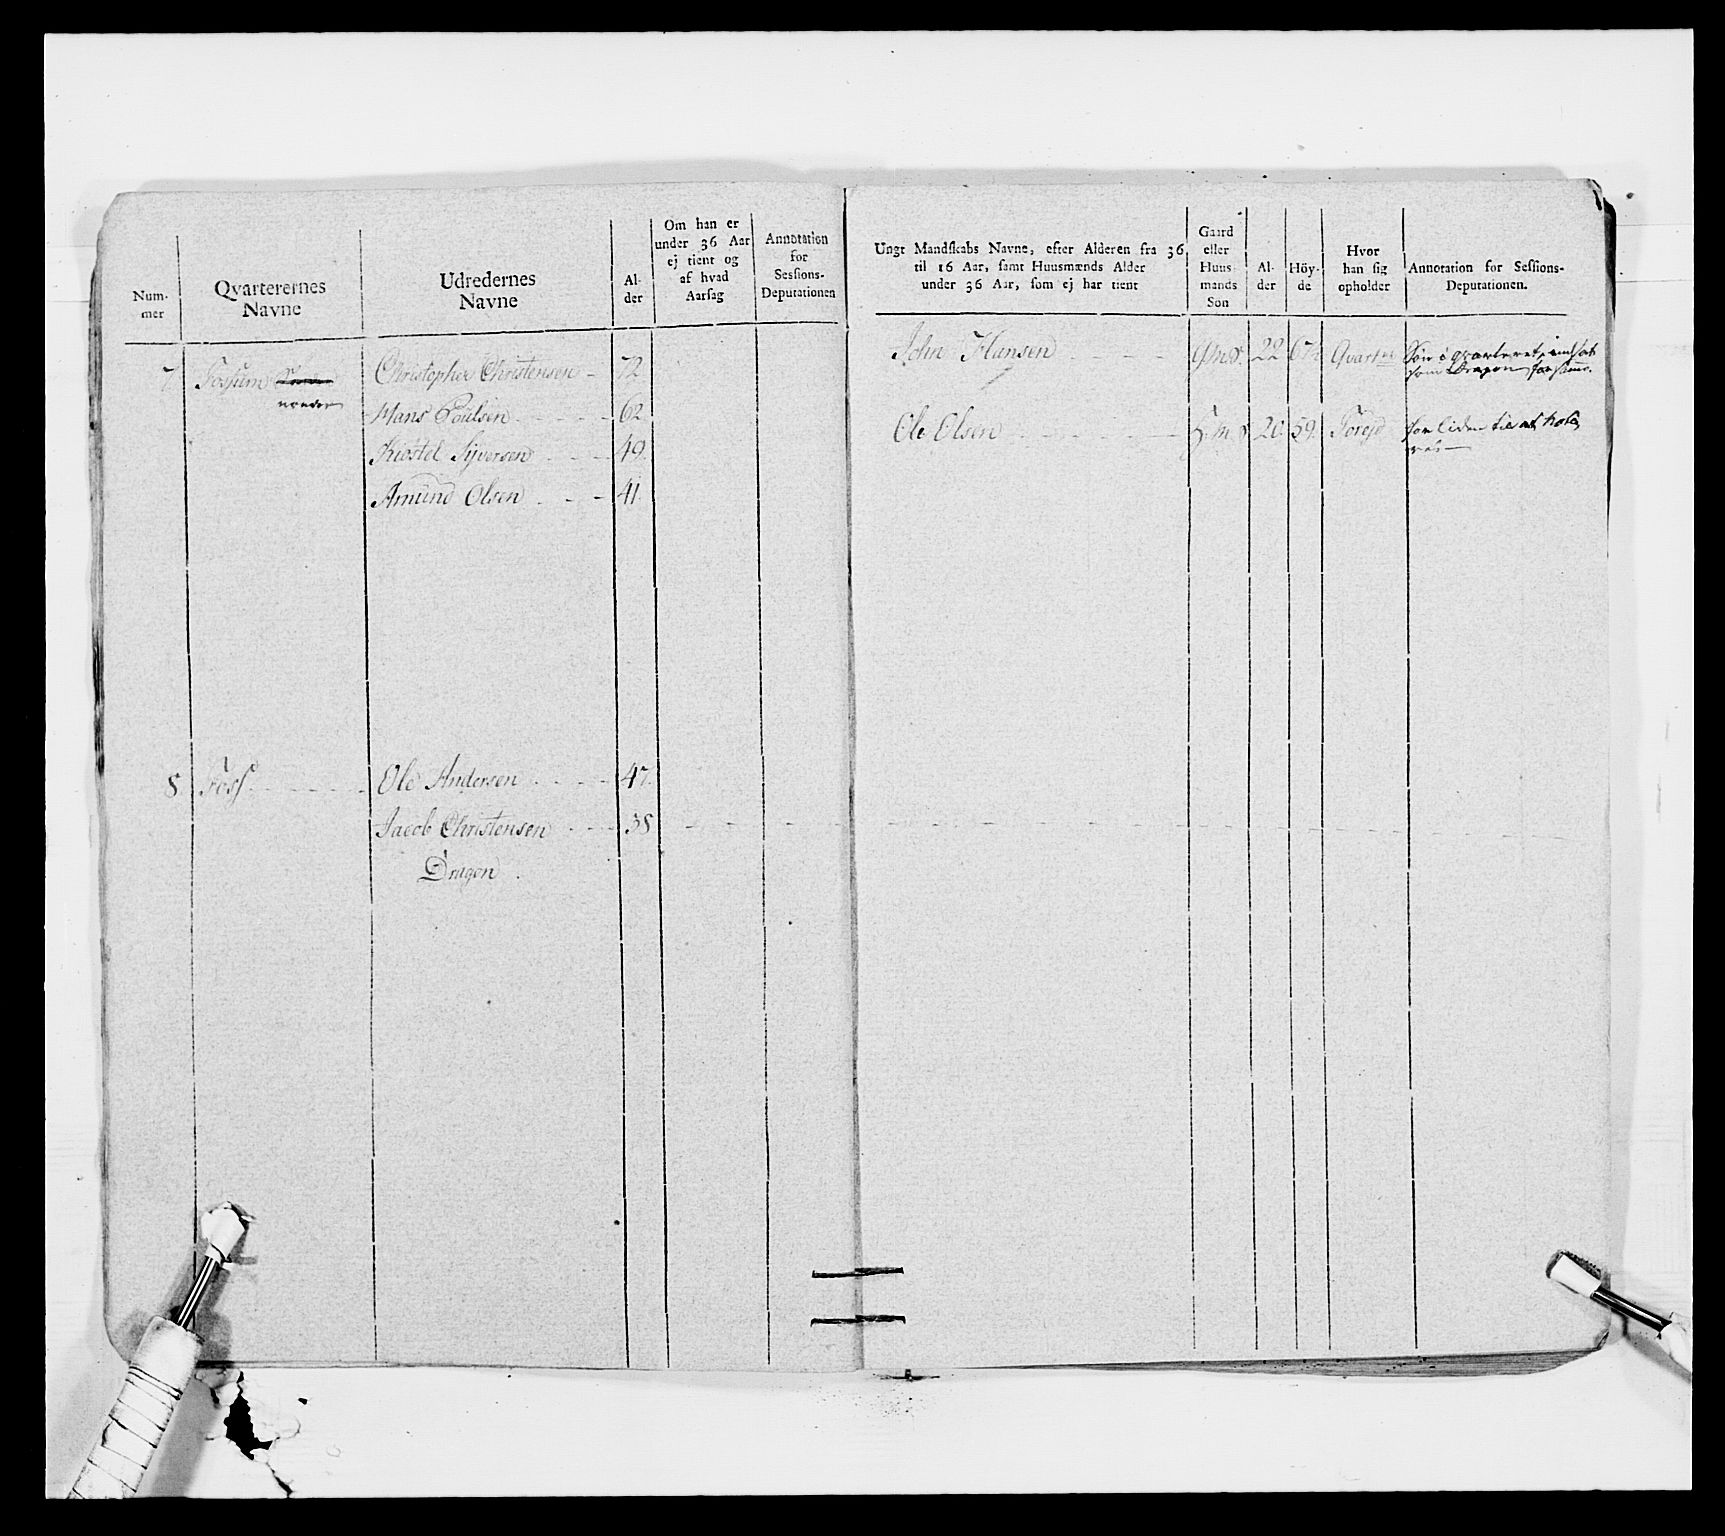 Num-
mer
Qvarterernes
Navne
Udredernes
Navne
Al-
der
Om han er
under 36 Aar
ej tient og
af hvad
Aarsag
Annotation
for
Sessions-
Deputationen
7 Fossum
nordre
Christopher Christensen - 72
Hans Poulsen - - - 62
Kiostel Sÿversen - - - 49
Amund Olsen - - - 41
8 Foss - - - - - Ole Andersen - - - - 47
Jacob Christensen - - - 38
Dragon
Ungt Mandskabs Navne, efter Alderen fra 36
til 16 Aar, samt Huusmænds Alder
under 36 Aar, som ej har tient
Gaard
eller
Huus-
mands
Son
Al-
der
Höy-
de
Hvor
han sig
opholder
Annotation for Sessions-
Deputationen.
John Hansen - - - - G.m.S. 22 Qvart
i qvarteret, indsat
som Dragon
Ole Olsen - - - - H.m.S 20. 59. 
for liden til at note,
res